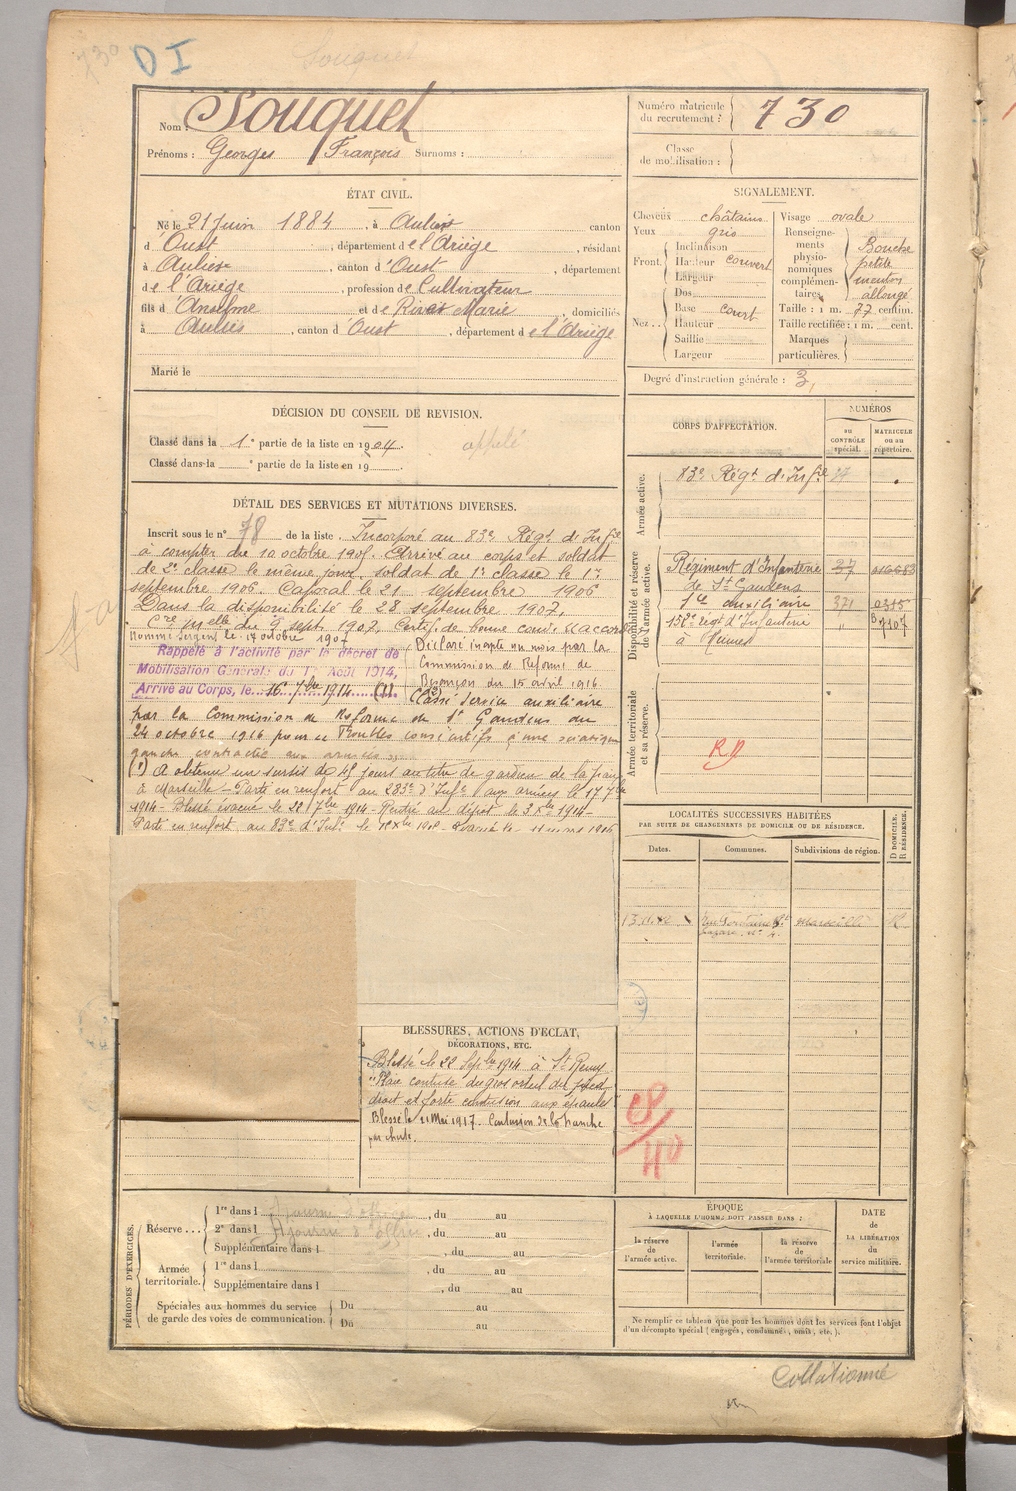 730
D I
Souquet
Nom : Souquet
Prénoms : Georges François Surnoms :
Numéro matricule du recrutement : 730
Classe de mobilisation :
ÉTAT CIVIL.
Né le 21 Juin 1884, à Aulus canton
d'Oust, département de l'Ariège, résidant
à Aulus, canton d'Oust, département
de l'Ariège, profession de Cultivateur
fils d'Anselme et de Rivat Marie, domiciliés
à Aulus, canton d'Oust, département de l'Ariège
Marié le
SIGNALEMENT.
Cheveux châtains
Yeux gris
Front. Inclinaison
Hauteur couvert
Largeur
Nez... Dos
Base court
Hauteur
Saillie
Largeur
Visage ovale
Renseignements physionomiques complémentaires. Bouche petite menton allongé
Taille : 1 m. 77 centim.
Taille rectifiée : 1 m. cent.
Marques particulières.
Degré d'instruction générale : 3
DÉCISION DU CONSEIL DE REVISION.
Classé dans la 1e partie de la liste en 1904. appelé
Classé dans la e partie de la liste en 19
CORPS D'AFFECTATION.
NUMÉROS
au CONTRÔLE spécial.
MATRICULE ou au répertoire.
Armée active.
83e Régt d'Infie
Disponibilité et réserve de l'armée active.
Régiment d'Infanterie 27
de St Gaudens
auxiliaire 371 0315
d'Infanterie 9107
à
Armée territoriale et sa réserve.
R.D
DÉTAIL DES SERVICES ET MUTATIONS DIVERSES.
Inscrit sous le n° 78 de la liste. Incorporé au 83e Régt d'Infie
à compter du 10 octobre 1905. Arrivé au corps et soldat
de 2e classe le même jour, soldat de 1e classe le 1er
septembre 1906. Caporal le 21 septembre 1906
Dans la disponibilité le 28 septembre 1907.
Certif. de bonne conte accordé
Nommé Sergent le 17 octobre 1907
Rappelé à l'activité par le décret de
Mobilisation Générale du 1er Août 1914,
Arrivé au Corps, le 16 7bre 1914 (1).
Déclaré inapte un mois par la
Commission de Réforme de
Besançon du 15 avril 1916.
Classé Service auxiliaire
par la Commission de Réforme de St Gaudens du
24 octobre 1916 pour " Troubles consécutifs à une sciatique
gauche contractée aux armées "
(1) A obtenu un sursis de 45 jours au titre de gardien de
à Marseille - Parti en renfort au 283e d'Infie aux armées le 17 7bre
1914 - Blessé évacué le 22 7bre 1914 - Rentré au dépôt le 3 Xbre 1914 -
Parti en renfort au 83e d'Infie le
LOCALITÉS SUCCESSIVES HABITÉES
PAR SUITE DE CHANGEMENTS DE DOMICILE OU DE RÉSIDENCE.
Dates. Communes. Subdivisions de région. D DOMICILE. R RÉSIDENCE.
Marseille R
BLESSURES, ACTIONS D'ÉCLAT,
DÉCORATIONS, ETC.
Blessé le 22 Septbre 1914 à St Remy
" Plaie contuse du gros orteil du pied
droit et forte contusion aux épaules "
Blessé le 21 Mai 1917. Contusion de la hanche
par chute.
CP/40
PÉRIODES D'EXERCICES.
Réserve... 1re dans l , du au
2e dans l , du au
Supplémentaire dans l , du au
Armée territoriale. 1re dans l , du au
Supplémentaire dans l , du au
Spéciales aux hommes du service de garde des voies de communication. Du au
Du au
ÉPOQUE
À LAQUELLE L'HOMME DOIT PASSER DANS :
la réserve de l'armée active.
l'armée territoriale.
la réserve de l'armée territoriale
DATE de LA LIBÉRATION du service militaire.
Ne remplir ce tableau que pour les hommes dont les services font l'objet
d'un décompte spécial (engagés, condamnés, omis, etc.).
Collationné